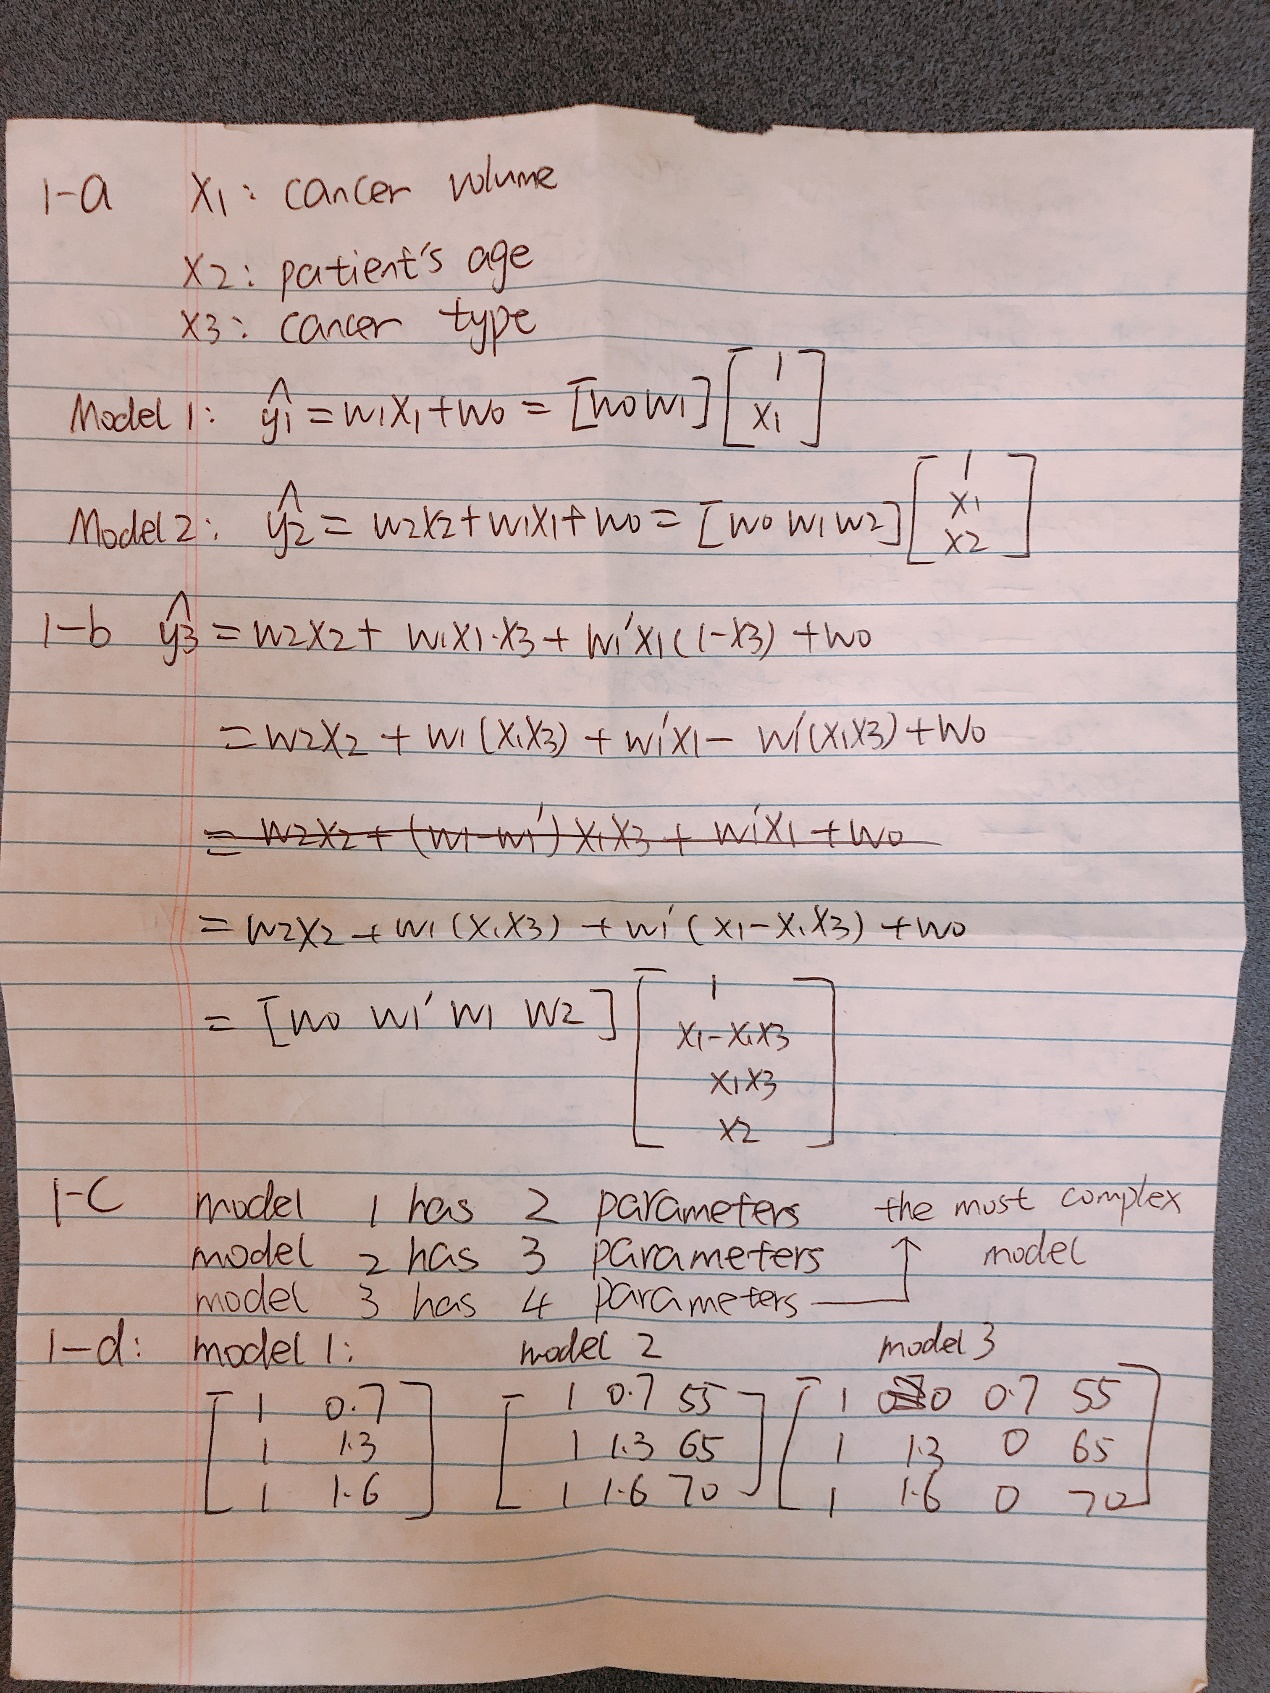 1-a x1: cancer volume
x2: patient's age
x3: cancer type
Model 1: ŷ1 = w1x1+w0 = [w0 w1] [1
x1]
Model 2: ŷ2 = w2x2+w1x1+w0 = [w0 w1 w2] [1
x1
x2]
1-b ŷ3 = w2x2 + w1x1·x3 + w1'x1(1-x3) + w0
= w2x2 + w1(x1x3) + w1'x1 - w1'(x1x3) + w0
= w2x2 + (w1-w1')x1x3 + w1'x1 + w0
= w2x2 + w1(x1x3) + w1'(x1-x1x3) + w0
= [w0 w1' w1 w2] [1
x1-x1x3
x1x3
x2]
1-c model 1 has 2 parameters the most complex
model 2 has 3 parameters ↑ model
model 3 has 4 parameters
1-d: model 1: model 2 model 3
[1 0.7 [1 0.7 55 [1 0 0.7 55
1 1.3 1 1.3 65 1 1.3 0 65
1 1.6] 1 1.6 70] 1 1.6 0 70]